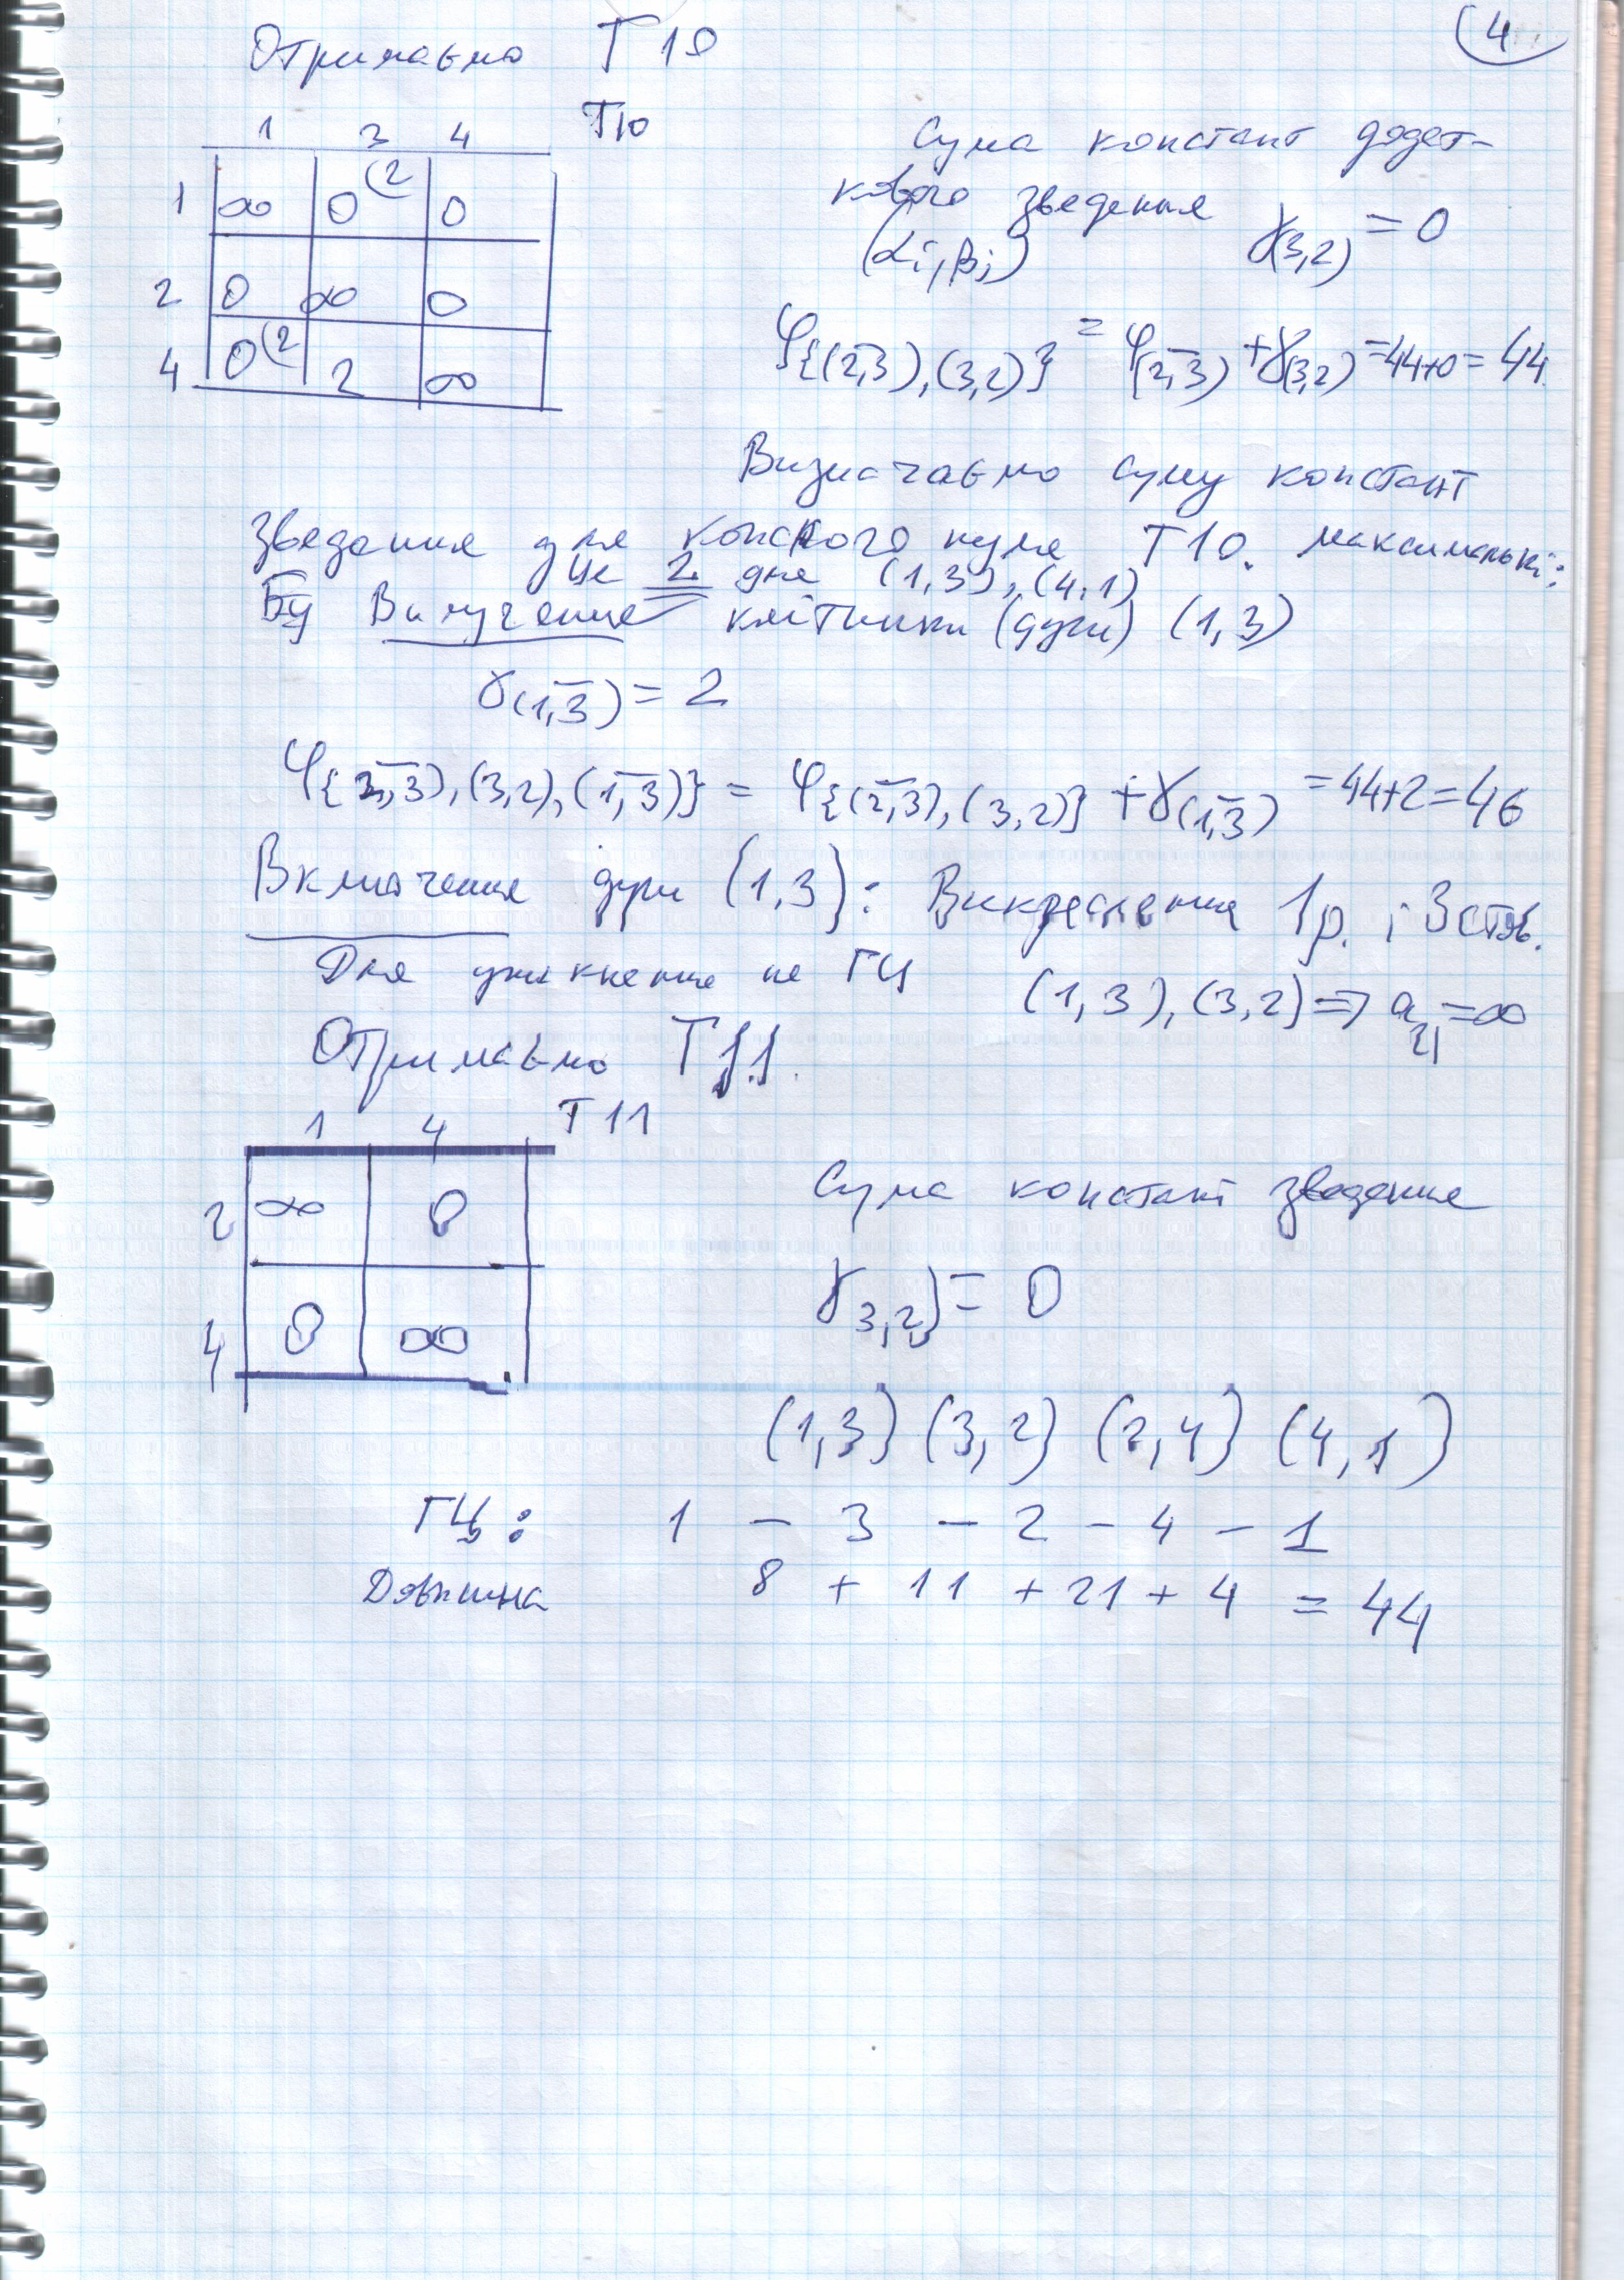 4
Отримаємо Т10
Т10
1 3 4
1 ∞ 0(2 0
2 0 ∞ 0
4 0(2 2 ∞
Сума констант додат-
кового зведення γ(3,2) = 0
(αi, βj)
φ{(2,3̅),(3,2)} = φ(2,3̅) + γ(3,2) = 44+0 = 44
Визначаємо суму констант
зведення для кожного нуля Т10. максимальні:
це 2 для (1,3), (4,1)
Вилучення клітинки (дуги) (1,3)
γ(1,3̅) = 2
φ{2,3̅),(3,2),(1,3̅)} = φ{(2,3̅),(3,2)} + γ(1,3̅) = 44+2 = 46
Включення дуги (1,3): Викреслення 1р. і 3 стов.
Для уникнення не ГЦ (1,3),(3,2) => a21 = ∞
Отримаємо Т11.
1 4 Т11
2 ∞ 0
4 0 ∞
Сума констант зведення
γ3,2) = 0
(1,3) (3,2) (2,4) (4,1)
ГЦ: 1 – 3 – 2 – 4 – 1
Довжина 8 + 11 + 21 + 4 = 44